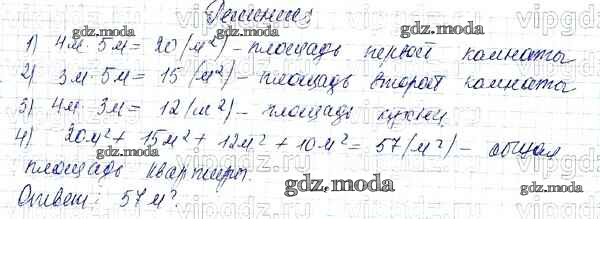 Решение:
1) 4м · 5м = 20 (м²) – площадь первой комнаты
2) 3м · 5м = 15 (м²) – площадь второй комнаты
3) 4м · 3м = 12 (м²) – площадь кухни
4) 20м² + 15м² + 12м² + 10м² = 57 (м²) – общая
площадь квартиры.
gdz.moda
gdz.moda
Ответ: 57 м².
gdz.moda